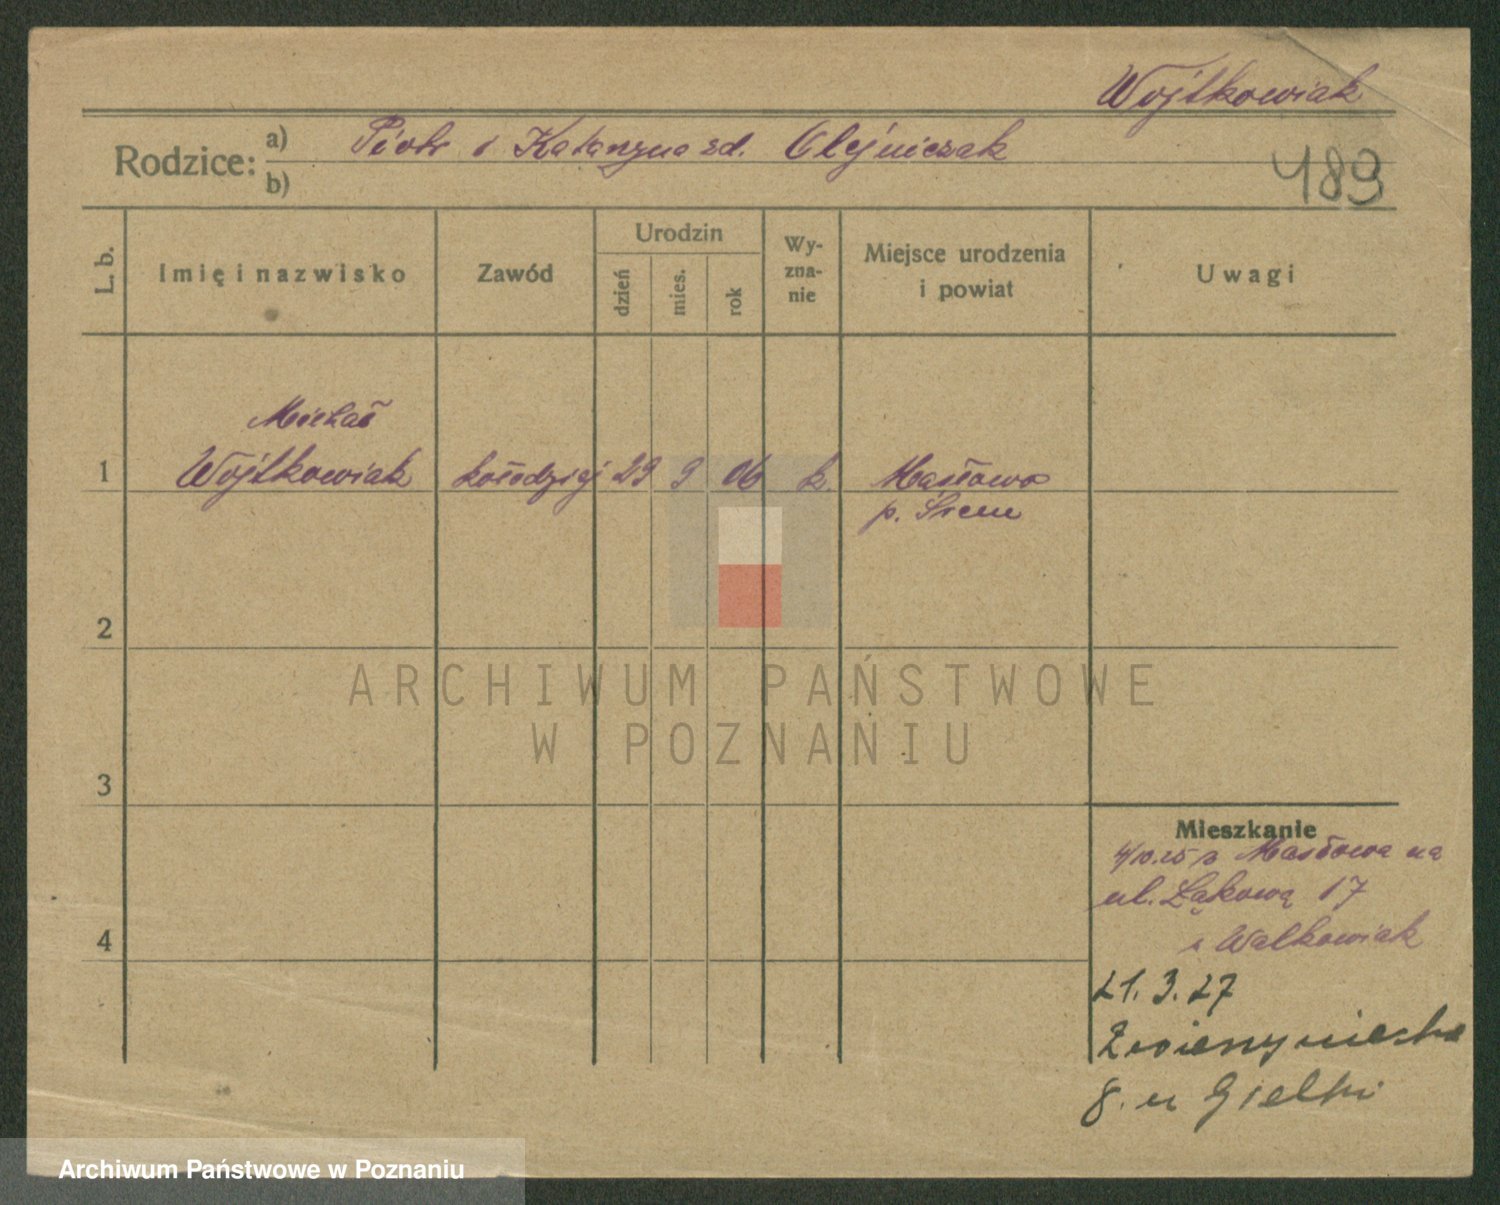 Wojtkowiak
Rodzice: a) Piotr i Katarzyna zd. Olejniczak
b)
489
L. b. Imię i nazwisko Zawód Urodzin dzień mies. rok Wy-zna-nie Miejsce urodzenia i powiat Uwagi
Michał
1 Wojtkowiak kołodziej 29 9 06 k. Masłowo
p. Śrem
2
3
4
Mieszkanie
4/10.25 z Masłowa na
ul. Łąkową 17
u Walkowiak
21. 3. 27
Zwierzyniecka
8. u
ARCHIWUM PAŃSTWOWE
W POZNANIU
Archiwum Państwowe w Poznaniu